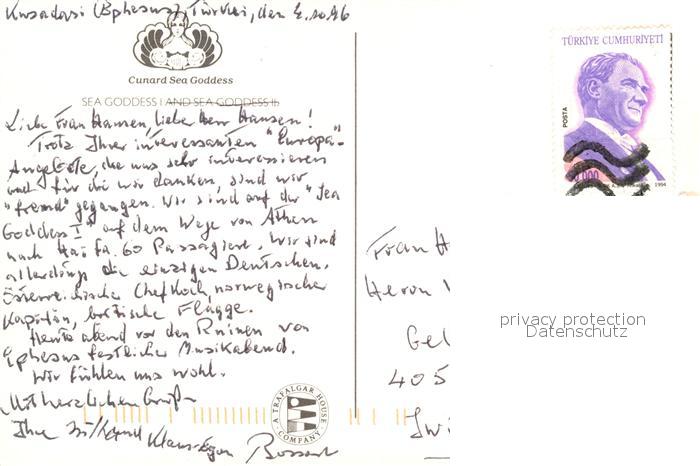 Kusadasi (Ephesus), Türkei, den 4.10.96
Cunard Sea Goddess
SEA GODDESS I AND SEA GODDESS II
Liebe Frau Hansen, lieber Herr Hansen!
Trotz Ihrer interessanten "Europa"-
Angebote, die uns sehr interessieren
und für die wir danken, sind wir
"fremd" gegangen. Wir sind auf der "Sea
Goddess I" auf dem Wege von Athen
nach Haifa. 60 Passagiere. Wir sind
allerdings die einzigen Deutschen.
Österreichischer Chefkoch, norwegischer
Kapitän, britische Flagge.
Heute abend vor den Ruinen von
Ephesus festlicher Musikabend.
Wir fühlen uns wohl.
Mit herzlichem Gruß
Ihre und Klaus-Egon
Bossart
A TRAFALGAR HOUSE COMPANY
TÜRKİYE CUMHURİYETİ
POSTA
000
1994
Frau H
Herrn
Gel
405
privacy protection
Datenschutz